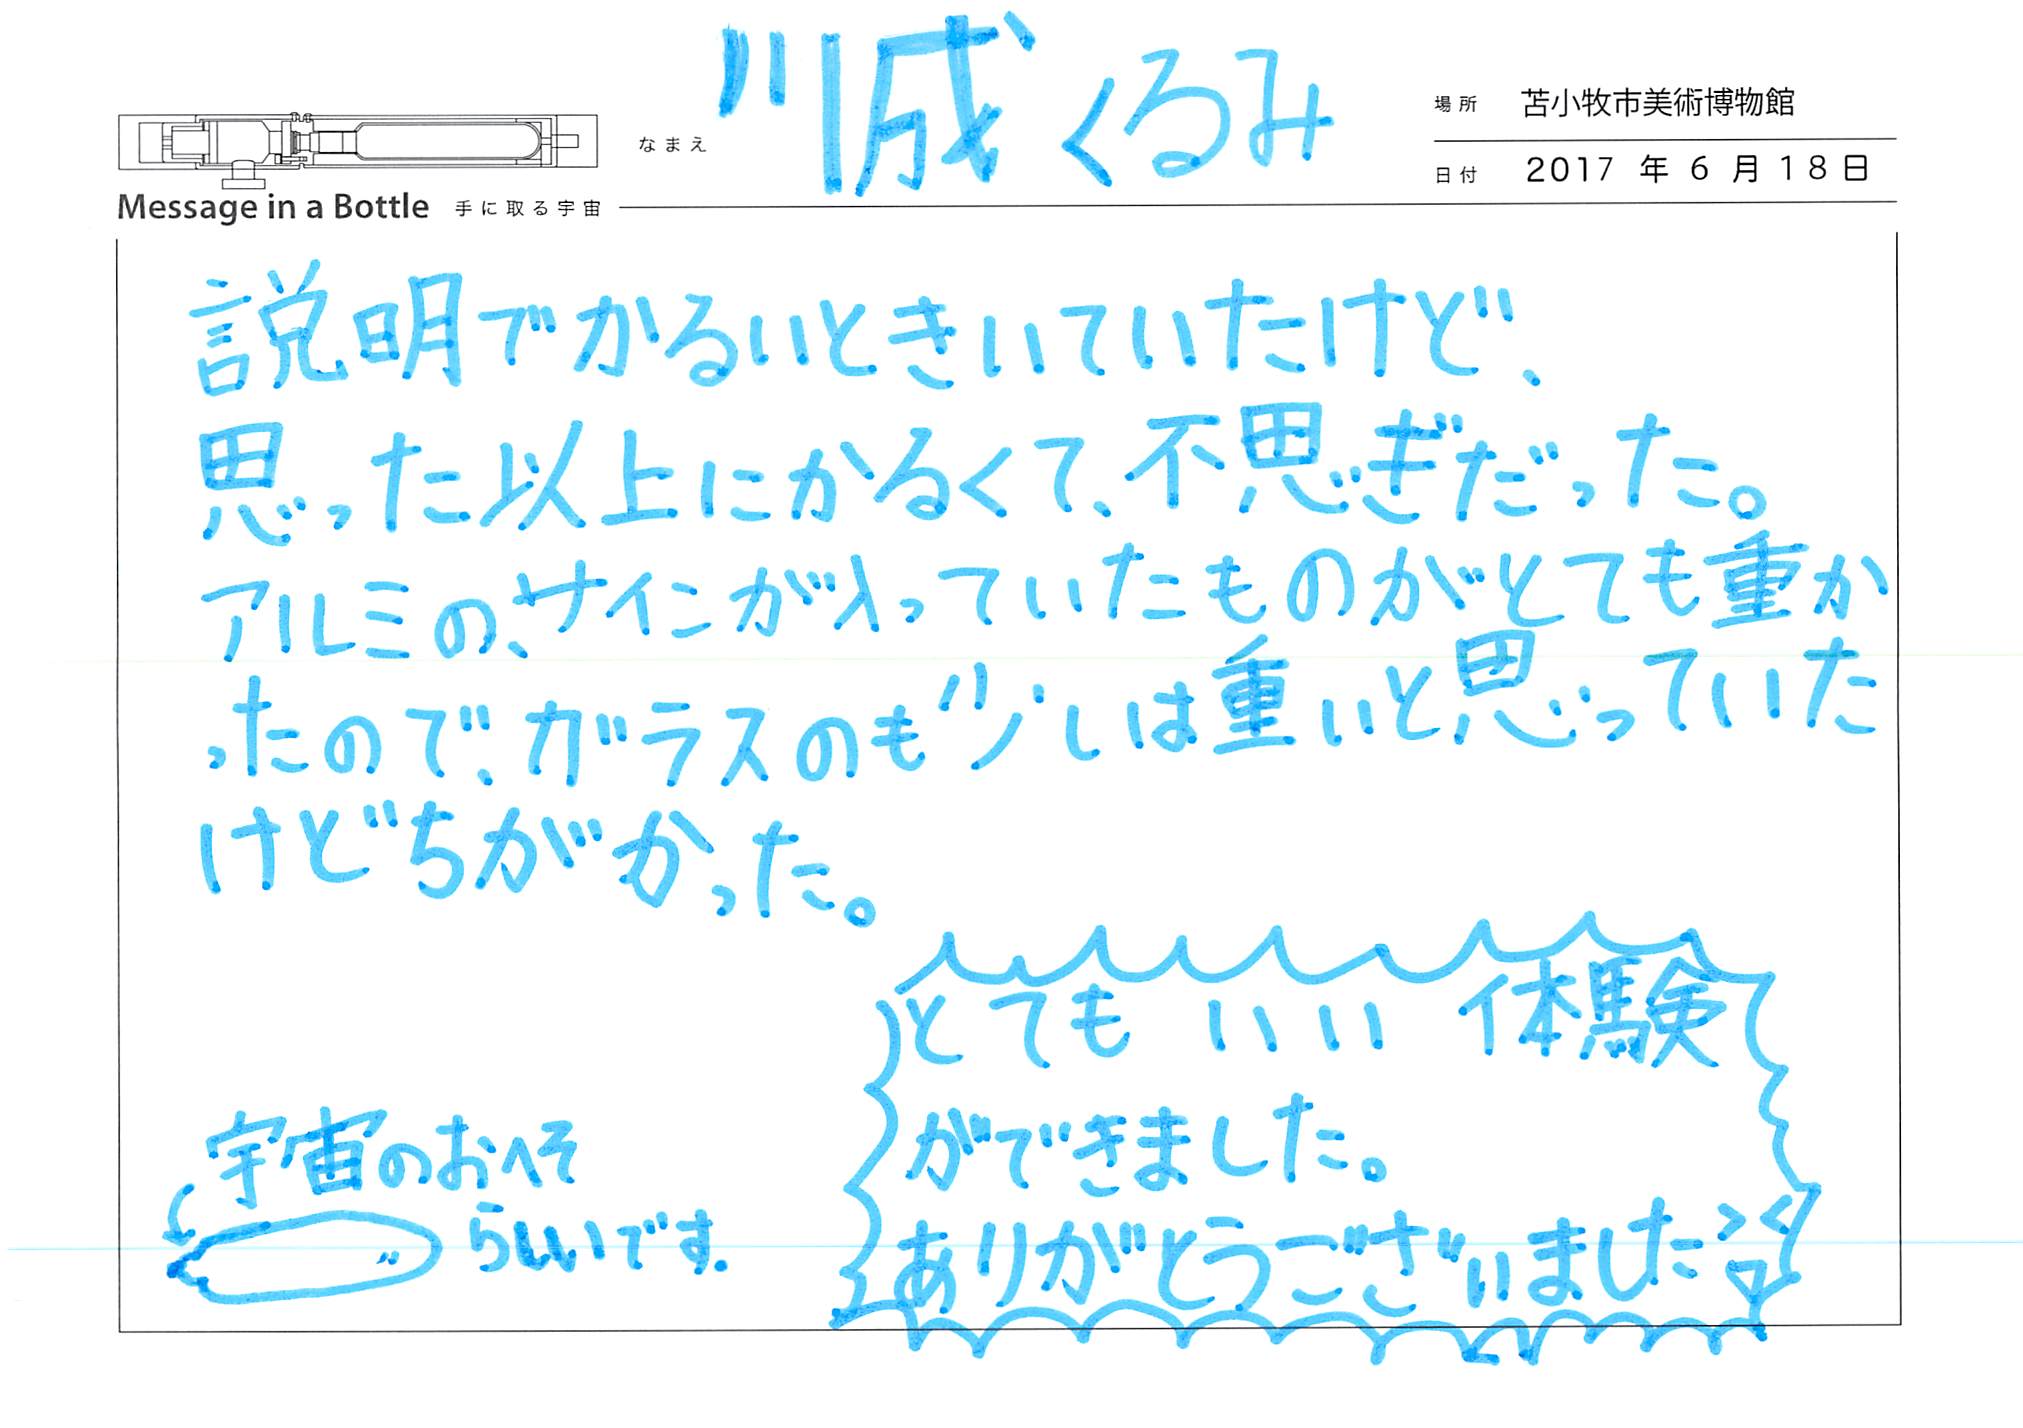 なまえ 川成くるみ
場所 苫小牧市美術博物館
日付 2017年6月18日
Message in a Bottle 手に取る宇宙
説明でかるいときいていたけど、
思った以上にかるくて、不思ぎだった。
アルミの、サインが入っていたものがとても重か
ったので、ガラスのも少しは重いと思っていた
けどちがかった。
とてもいい体験
ができました。
ありがとうございました
宇宙のおへそ
らしいです.